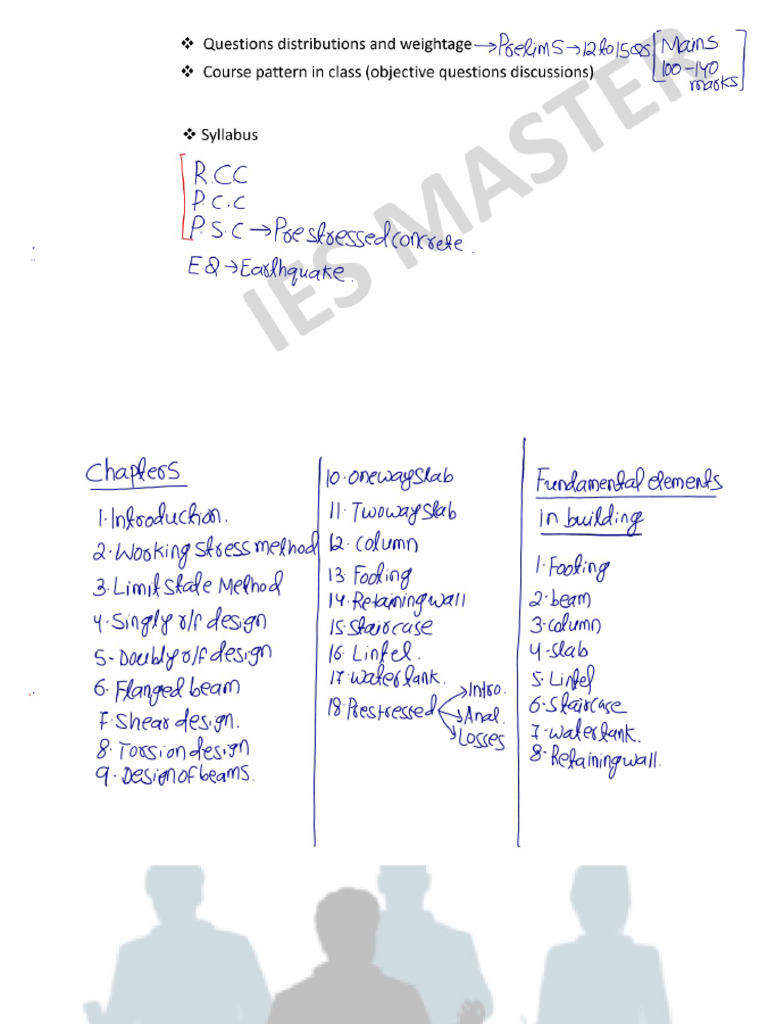 ❖ Questions distributions and weightage → Prelims → 12 to 15 Qs [Mains 100-140 marks]
❖ Course pattern in class (objective questions discussions)
❖ Syllabus
R.C.C
P.C.C
P.S.C → Prestressed concrete.
EQ → Earthquake.
IES MASTER
Chapters
1. Introduction.
2. Working stress method
3. Limit state Method
4. Singly r/f design
5. Doubly r/f design
6. Flanged beam
7. Shear design.
8. Torsion design
9. Design of beams.
10. one way slab
11. Two way slab
12. column
13. Footing
14. Retaining wall
15. staircase
16. Lintel.
17. water tank.
18. Prestressed → Intro.
→ Anal.
→ Losses
Fundamental elements
in building
1. Footing
2. beam
3. column
4. slab
5. Lintel
6. staircase
7. water tank.
8. Retaining wall.